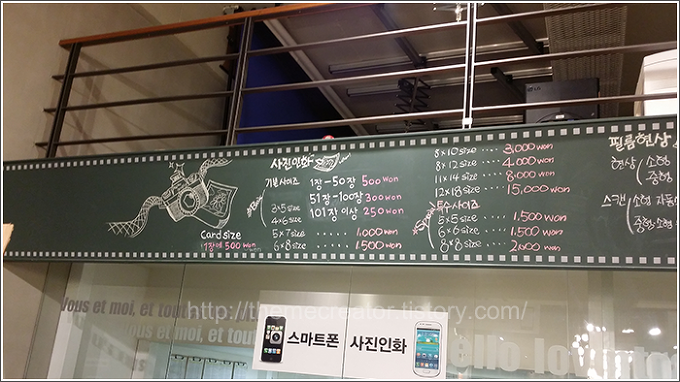 사진인화
기본사이즈
3×5size
4×6size
1장-50장 500won
51장-100장 300won
101장 이상 250won
5×7size ..... 1,000won
6×8size ..... 1,500won
Card size
1장에 500won
8×10size .... 3,000won
8×12size .... 4,000won
11×14size .... 8,000won
12×18size .... 15,000won
특수사이즈
5×5size .... 1,500won
6×6size .... 1,500won
8×8size .... 2,000won
필름현상
현상 소형
중형
스캔 소형
중형
Vous et moi, et tout
http://themecreator.tistory.com/
스마트폰 사진인화